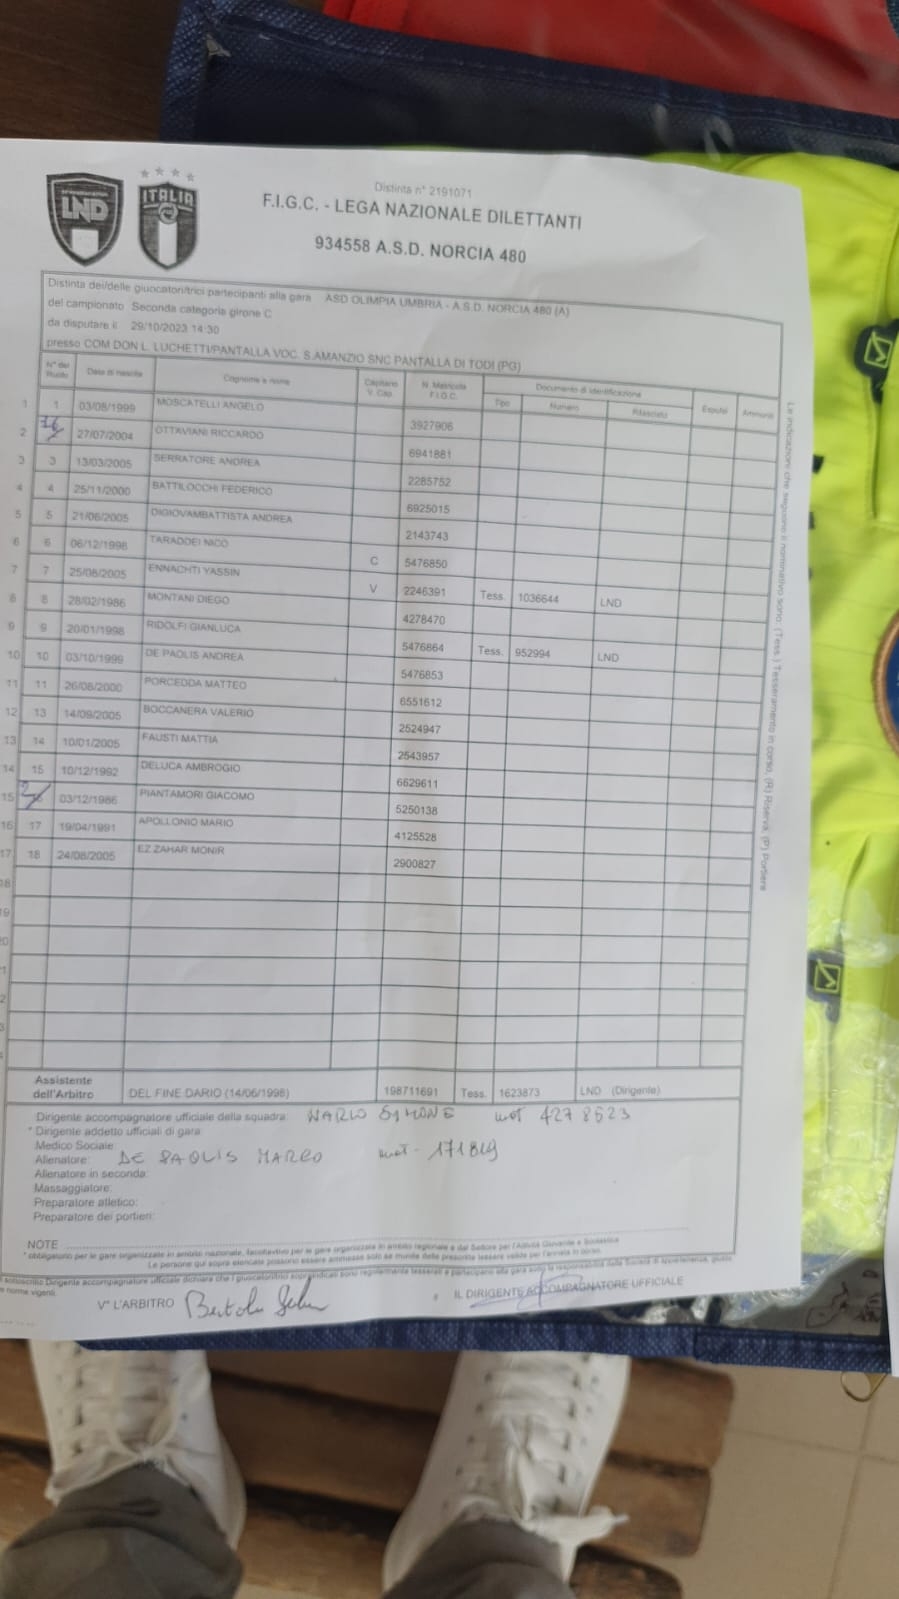 LND
ITALIA
Distinta n° 2191071
F.I.G.C. - LEGA NAZIONALE DILETTANTI
934558 A.S.D. NORCIA 480
Distinta dei/delle giuocatori/trici partecipanti alla gara ASD OLIMPIA UMBRIA - A.S.D. NORCIA 480 (A)
del campionato Seconda categoria girone C
da disputare il 29/10/2023 14:30
presso COM DON L. LUCHETTI/PANTALLA VOC. S.AMANZIO SNC PANTALLA DI TODI (PG)
N° del Ruolo Data di nascita Cognome e nome Capitano V. Cap. N. Matricola F.I.G.C. Documento di identificazione Espulsi Ammoniti
Tipo Numero Rilasciato
1 1 03/08/1999 MOSCATELLI ANGELO 3927906
2 16 27/07/2004 OTTAVIANI RICCARDO 6941881
3 3 13/03/2005 SERRATORE ANDREA 2285752
4 4 25/11/2000 BATTILOCCHI FEDERICO 6925015
5 5 21/06/2005 DIGIOVAMBATTISTA ANDREA 2143743
6 6 06/12/1998 TARADDEI NICO C 5476850
7 7 25/08/2005 ENNACHTI YASSIN V 2246391 Tess. 1036644 LND
8 8 28/02/1986 MONTANI DIEGO 4278470
9 9 20/01/1998 RIDOLFI GIANLUCA 5476864 Tess. 952994 LND
10 10 03/10/1999 DE PAOLIS ANDREA 5476853
11 11 26/08/2000 PORCEDDA MATTEO 6551612
12 13 14/09/2005 BOCCANERA VALERIO 2524947
13 14 10/01/2005 FAUSTI MATTIA 2543957
14 15 10/12/1992 DELUCA AMBROGIO 6629611
15 2 03/12/1986 PIANTAMORI GIACOMO 5250138
16 17 19/04/1991 APOLLONIO MARIO 4125528
17 18 24/08/2005 EZ ZAHAR MONIR 2900827
18
19
20
Le indicazioni che seguono il nominativo sono: (Tess.) Tesseramento in corso, (R) Riserva, (P) Portiere
Assistente dell'Arbitro DEL FINE DARIO (14/06/1998) 198711691 Tess. 1623873 LND (Dirigente)
Dirigente accompagnatore ufficiale della squadra: mat 4278623
* Dirigente addetto ufficiali di gara:
Medico Sociale:
Allenatore: DE PAOLIS MARCO mat-
Allenatore in seconda:
Massaggiatore:
Preparatore atletico:
Preparatore dei portieri:
NOTE
* obbligatorio per le gare organizzate in ambito nazionale, facoltativo per le gare organizzate in ambito regionale e dal Settore per l'Attività Giovanile e Scolastica
Le persone qui sopra elencate possono essere ammesse solo se munite della prescritta tessera valida per l'annata in corso.
V° L'ARBITRO
IL DIRIGENTE ACCOMPAGNATORE UFFICIALE